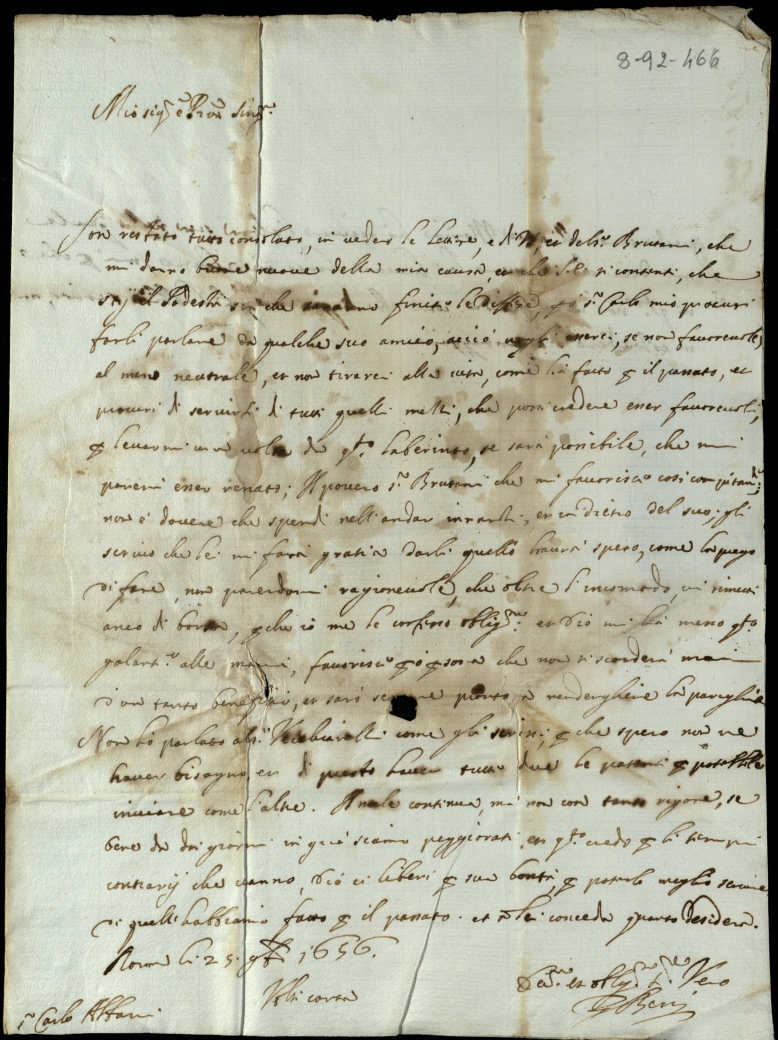 8-92-466
Mio sig.re e P.ron sing.re
Son restato tutto consolato, in veder le lettere, e di V.S. et del s.r Brutani, che
mi danno buone nuove della mia causa, che
stij il Podestà sin che saranno finite le difese, s.r Carlo mio procuri
farli parlare da qualche suo amico, acciò esserci, se non favorevole,
al meno neutrale, et non tirarci alla vita, come hà fatto p il passato, et
procuri di servirsi di tutti quelli mezzi, che possi credere esser favorevoli,
p levarmi una volta da q.to laberinto, se sarà possibile, che mi
pareria esser renato; Il povero s.r Brutani che mi favorisce così compitam.te,
non è dovere che spendi nell'andar innanti, et in dietro del suo; gli
scrivo che lei mi farà gratia darli quello haurà speso, come la prego
di fare, non parendomi ragionevole, che oltre l'incomodo, vi rimetti
anco di borsa, p che io me le confesso oblig.mo et Dio mi hà meno q.to
galant.o alle mani, favorisce che non si scorderà mai
d'un tanto beneficio, et sarò sempre pronto à rendergliene la pariglia
Non hò parlato al s.r Vecchiarelli come gli scrissi, p che spero non ne
haver bisogno, et di questo haver tutte due le patenti p possibile
inviare come l'altre. Il male continua, mà non con tanto rigore, se
bene da doi giorni in quà sciamo peggiorati, et q.to credo p li tempi
contrarij che vanno, Dio ci liberi p sua bontà, p poterlo meglio servire
di quelli habbiamo fatto p il passato. et à lei conceda quanto desidera.
Roma li 25 9bre 1656.
Dev.mo et oblig.mo s.re Vero
Volti carta
s.r Carlo